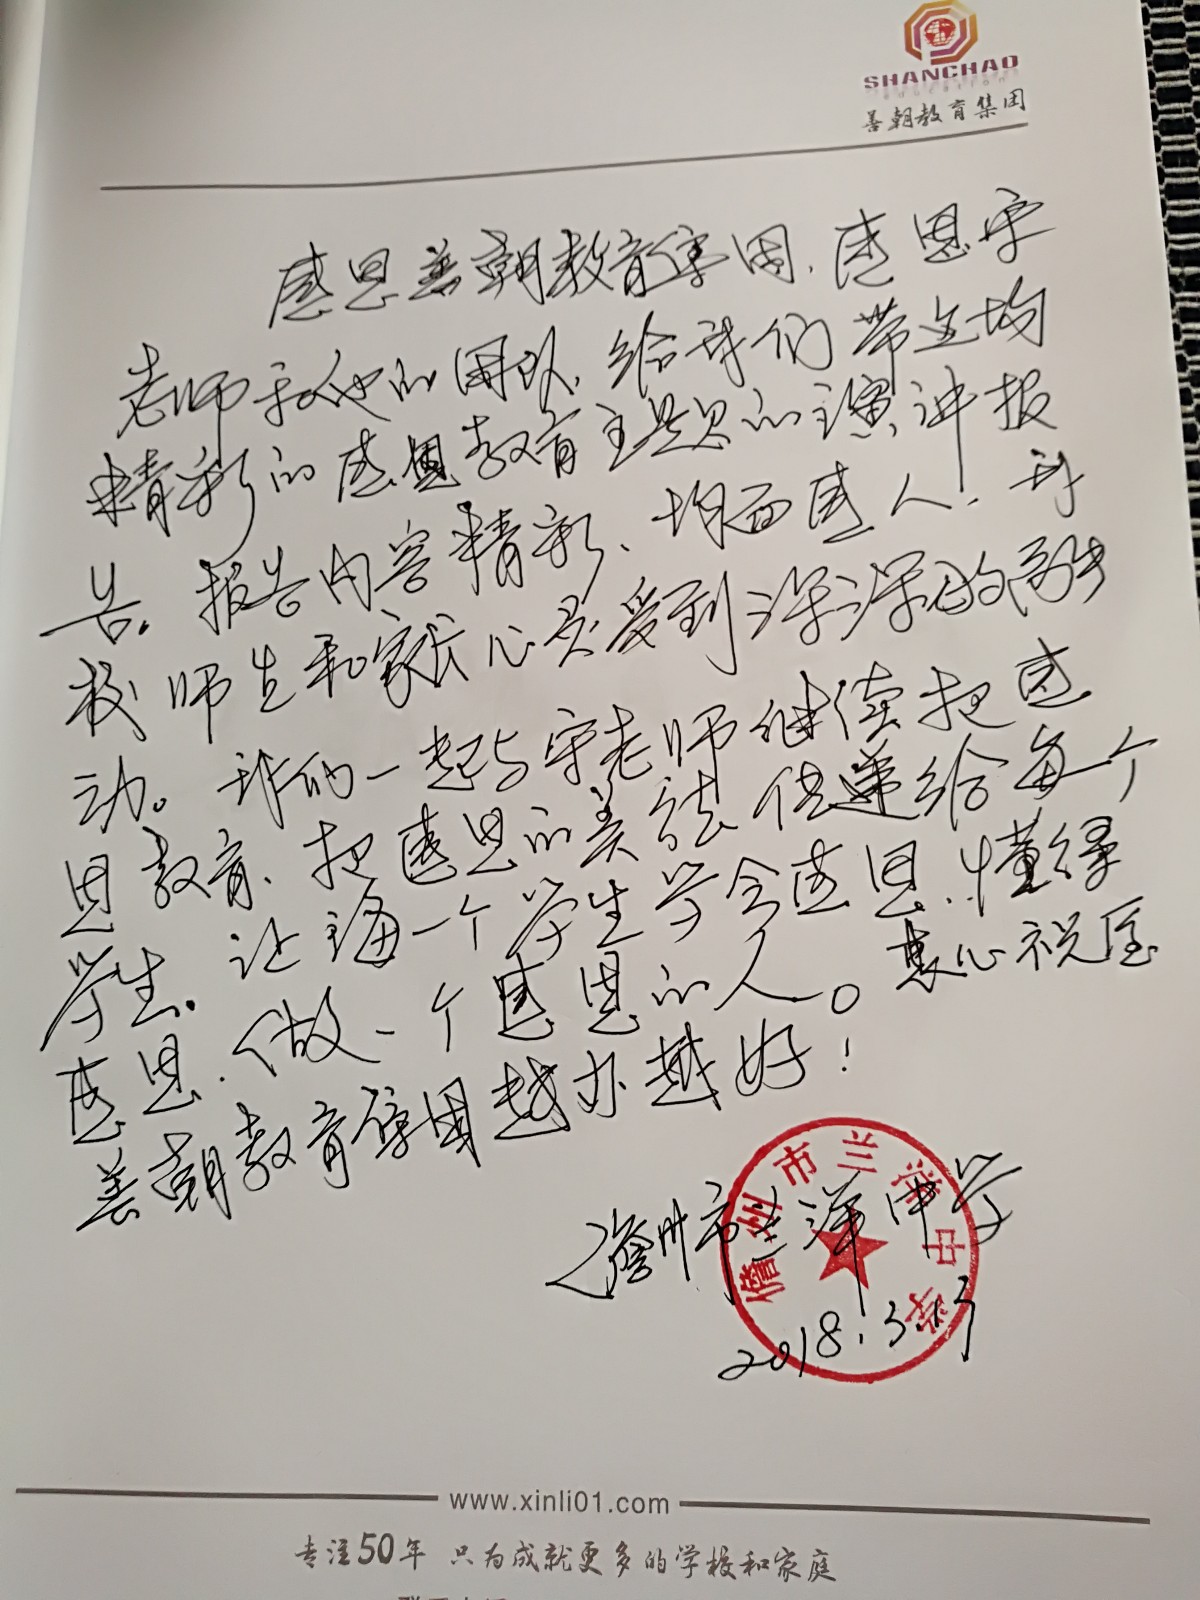 SHANCHAO
education
善朝教育集团
感恩善朝教育集团、感恩宇
老师和他的团队、给我们带上场
精彩的感恩教育主题的演讲报
告。报告内容精彩、场面感人、我
校师生和家长心灵受到深深的融
动。我们一起与宇老师继续把感
恩教育、把感恩的美德传递给每一个
学生。让每一个学生学会感恩、懂得
感恩、做一个感恩的人。衷心祝愿
善朝教育集团越办越好!
儋州市兰洋中学
儋州市兰洋中学
2018.3.13
www.xinli01.com
专注50年 只为成就更多的学校和家庭